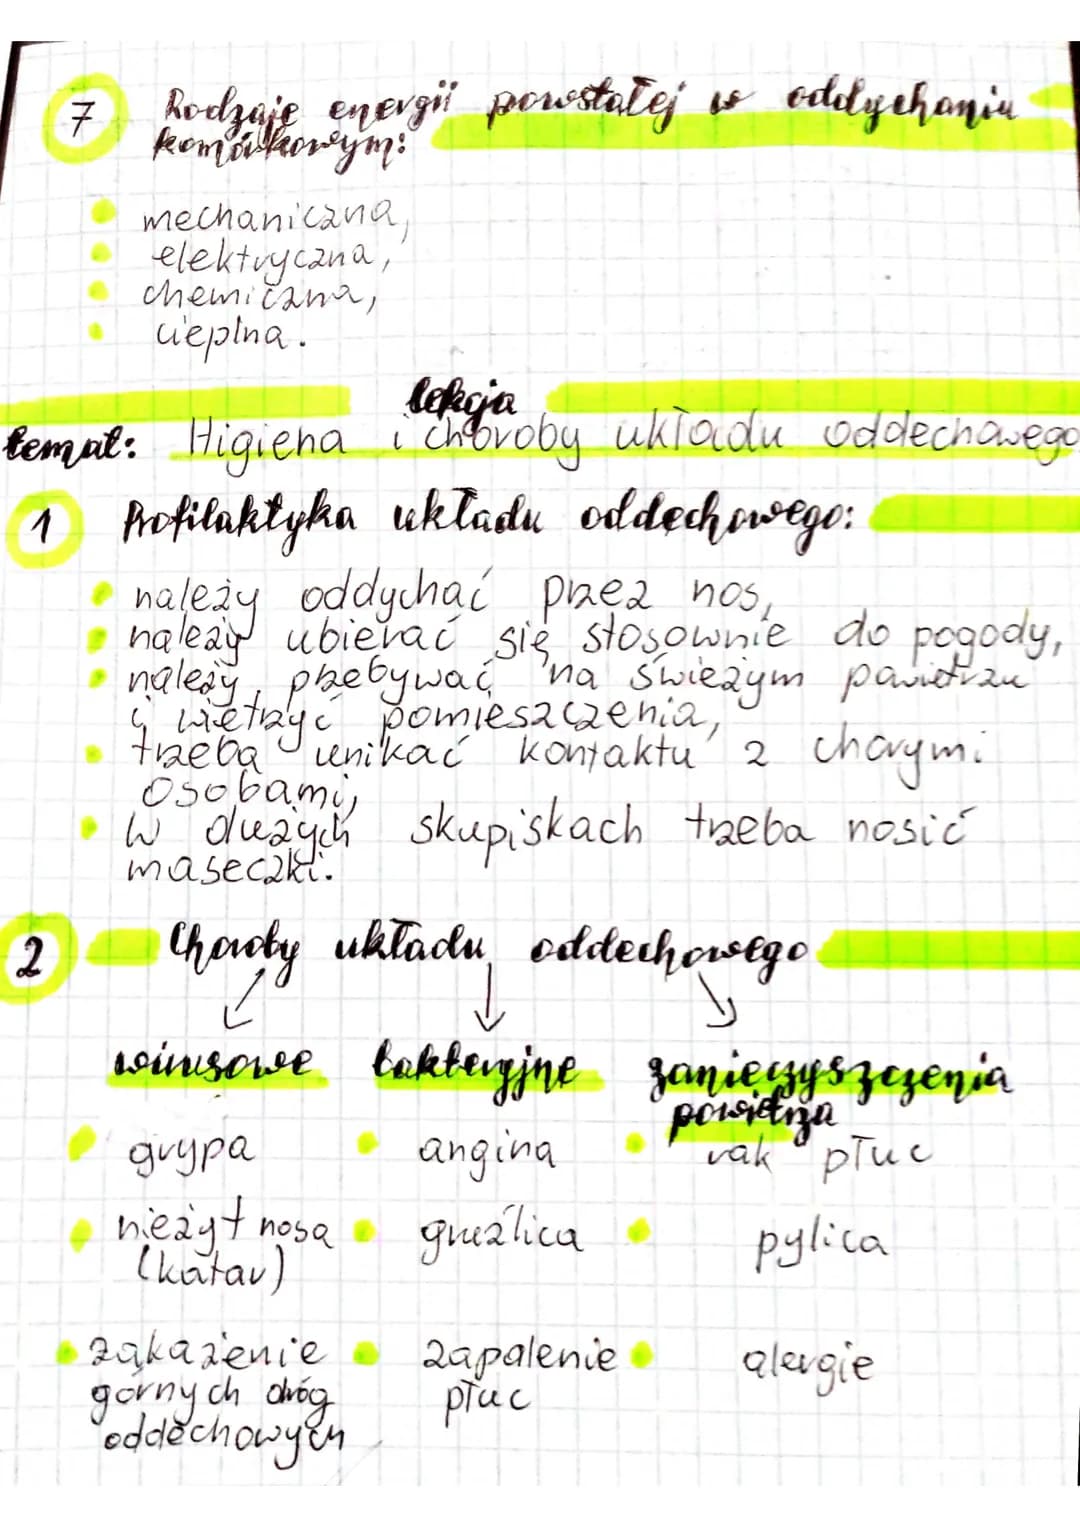 7 Rodzaje energii powstałej w oddychaniu
komórkowym:
mechaniczna,
elektryczna,
chemiczna,
cieplna.
lekcja
temat: Higiena i choroby układu oddechowego
1 Profilaktyka układu oddechowego:
należy oddychać przez nos,
należy ubierać się stosownie do pogody,
należy przebywać na świeżym powietrzu
i wietrzyć pomieszczenia,
trzeba unikać kontaktu z chorymi
osobami,
W dużych skupiskach trzeba nosić
maseczki.
2 Choroby układu oddechowego
wirusowe bakteryjne zanieczyszczenia
powietrza
grypa angina rak płuc
nieżyt nosa gruźlica pylica
(katar)
zakażenie zapalenie alergie
górnych dróg płuc
oddechowych